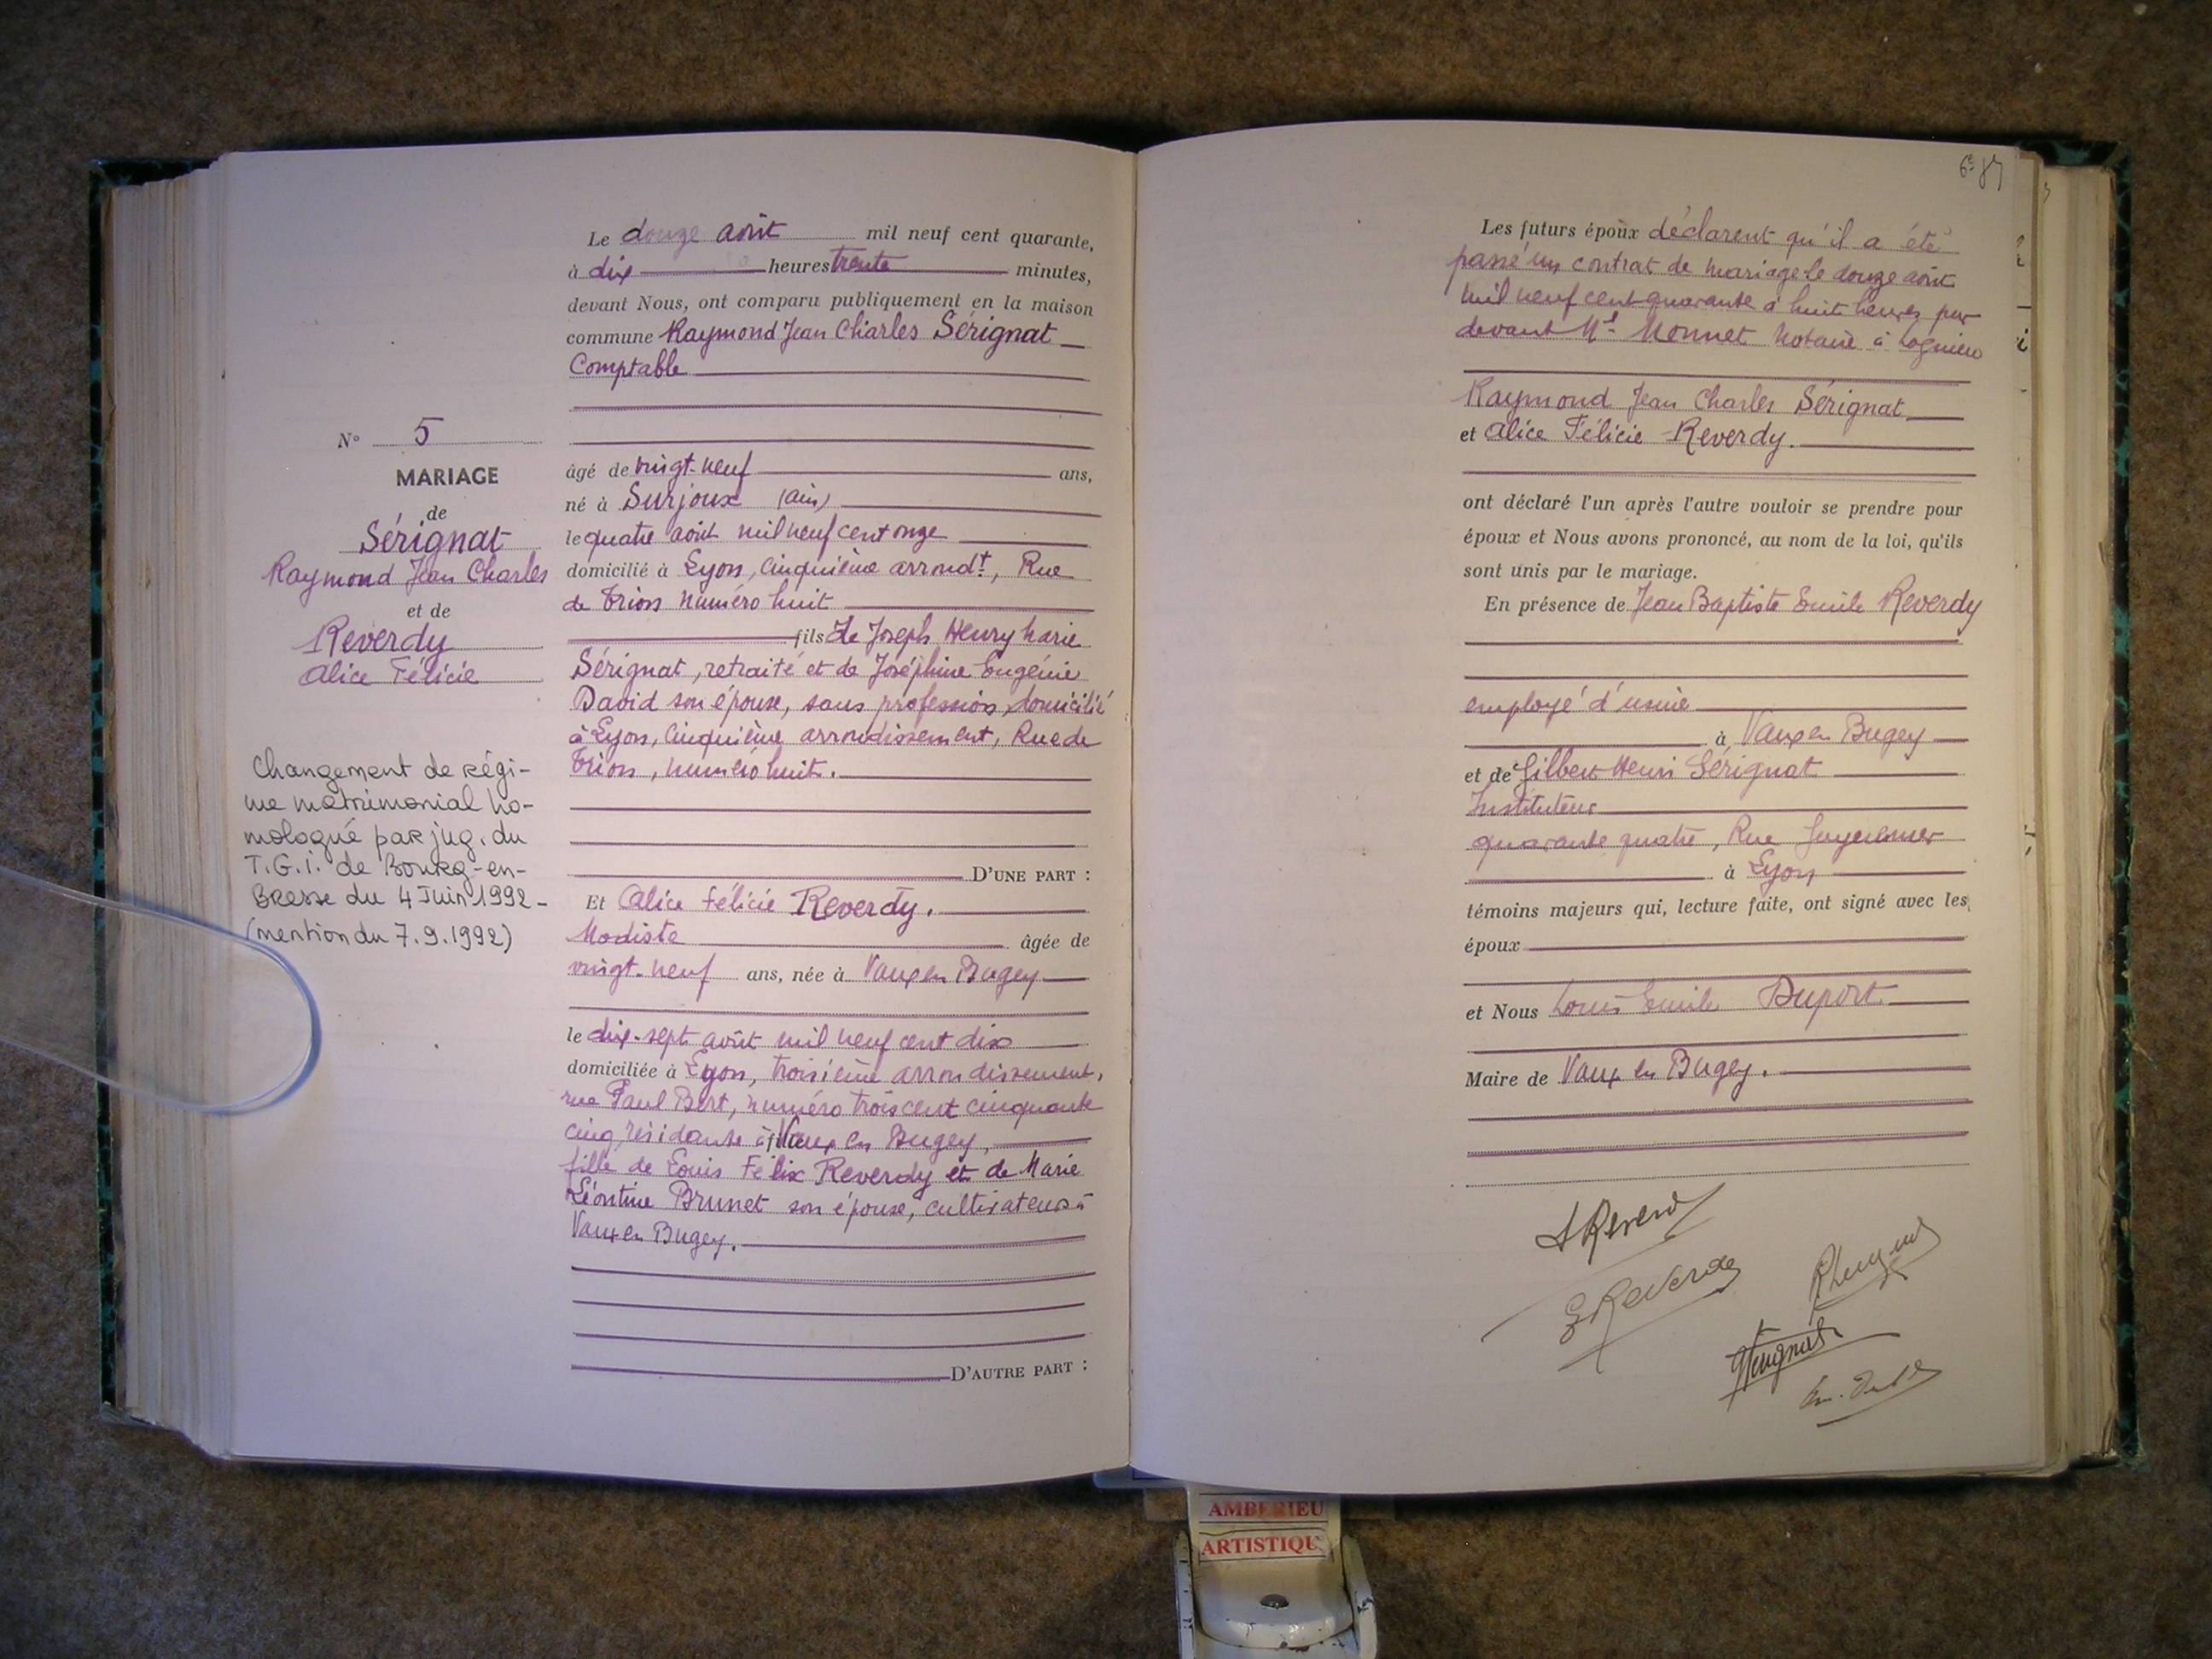 N° 5
MARIAGE
de
Sérignat
Raymond Jean Charles
et de
Reverdy
Alice Félicie
Changement de régi-
me matrimonial ho-
mologué par jug. du
T.G.I. de Bourg-en-
Bresse du 4 Juin 1992 -
(mention du 7.9.1992)
Le douze août mil neuf cent quarante,
à dix heures trente minutes,
devant Nous, ont comparu publiquement en la maison
commune Raymond Jean Charles Sérignat
Comptable
âgé de vingt-neuf ans,
né à Surjoux (Ain)
le quatre août mil neuf cent onze
domicilié à Lyon, cinquième arrondt, Rue
de Trion numéro huit
fils de Joseph Henry Marie
Sérignat, retraité et de Joséphine Eugénie
David son épouse, sans profession, domicilié
à Lyon, cinquième arrondissement, Rue de
Trion, numéro huit.
D'UNE PART :
Et Alice Félicie Reverdy.
Modiste âgée de
vingt-neuf ans, née à Vaux en Bugey
le dix-sept août mil neuf cent dix
domiciliée à Lyon, troisième arrondissement,
rue Paul Bert, numéro trois cent cinquante
cinq résidante à Vaux en Bugey,
fille de Louis Félix Reverdy et de Marie
Léontine Brunet son épouse, cultivateurs à
Vaux en Bugey.
D'AUTRE PART :
Les futurs époux déclarent qu'il a été
passé un contrat de mariage le douze août
mil neuf cent quarante à huit heures par
devant Me Monnet Notaire à Lagnieu
Raymond Jean Charles Sérignat
et Alice Félicie Reverdy.
ont déclaré l'un après l'autre vouloir se prendre pour
époux et Nous avons prononcé, au nom de la loi, qu'ils
sont unis par le mariage.
En présence de Jean Baptiste Emile Reverdy
employé d'usine
à Vaux en Bugey
et de Gilbert Henri Sérignat
Instituteur
quarante quatre, Rue Guynemer
à Lyon
témoins majeurs qui, lecture faite, ont signé avec les
époux
et Nous Louis Emile Duport
Maire de Vaux en Bugey.
A Reverdy
E Reverdy
AMBERIEU
ARTISTIQU